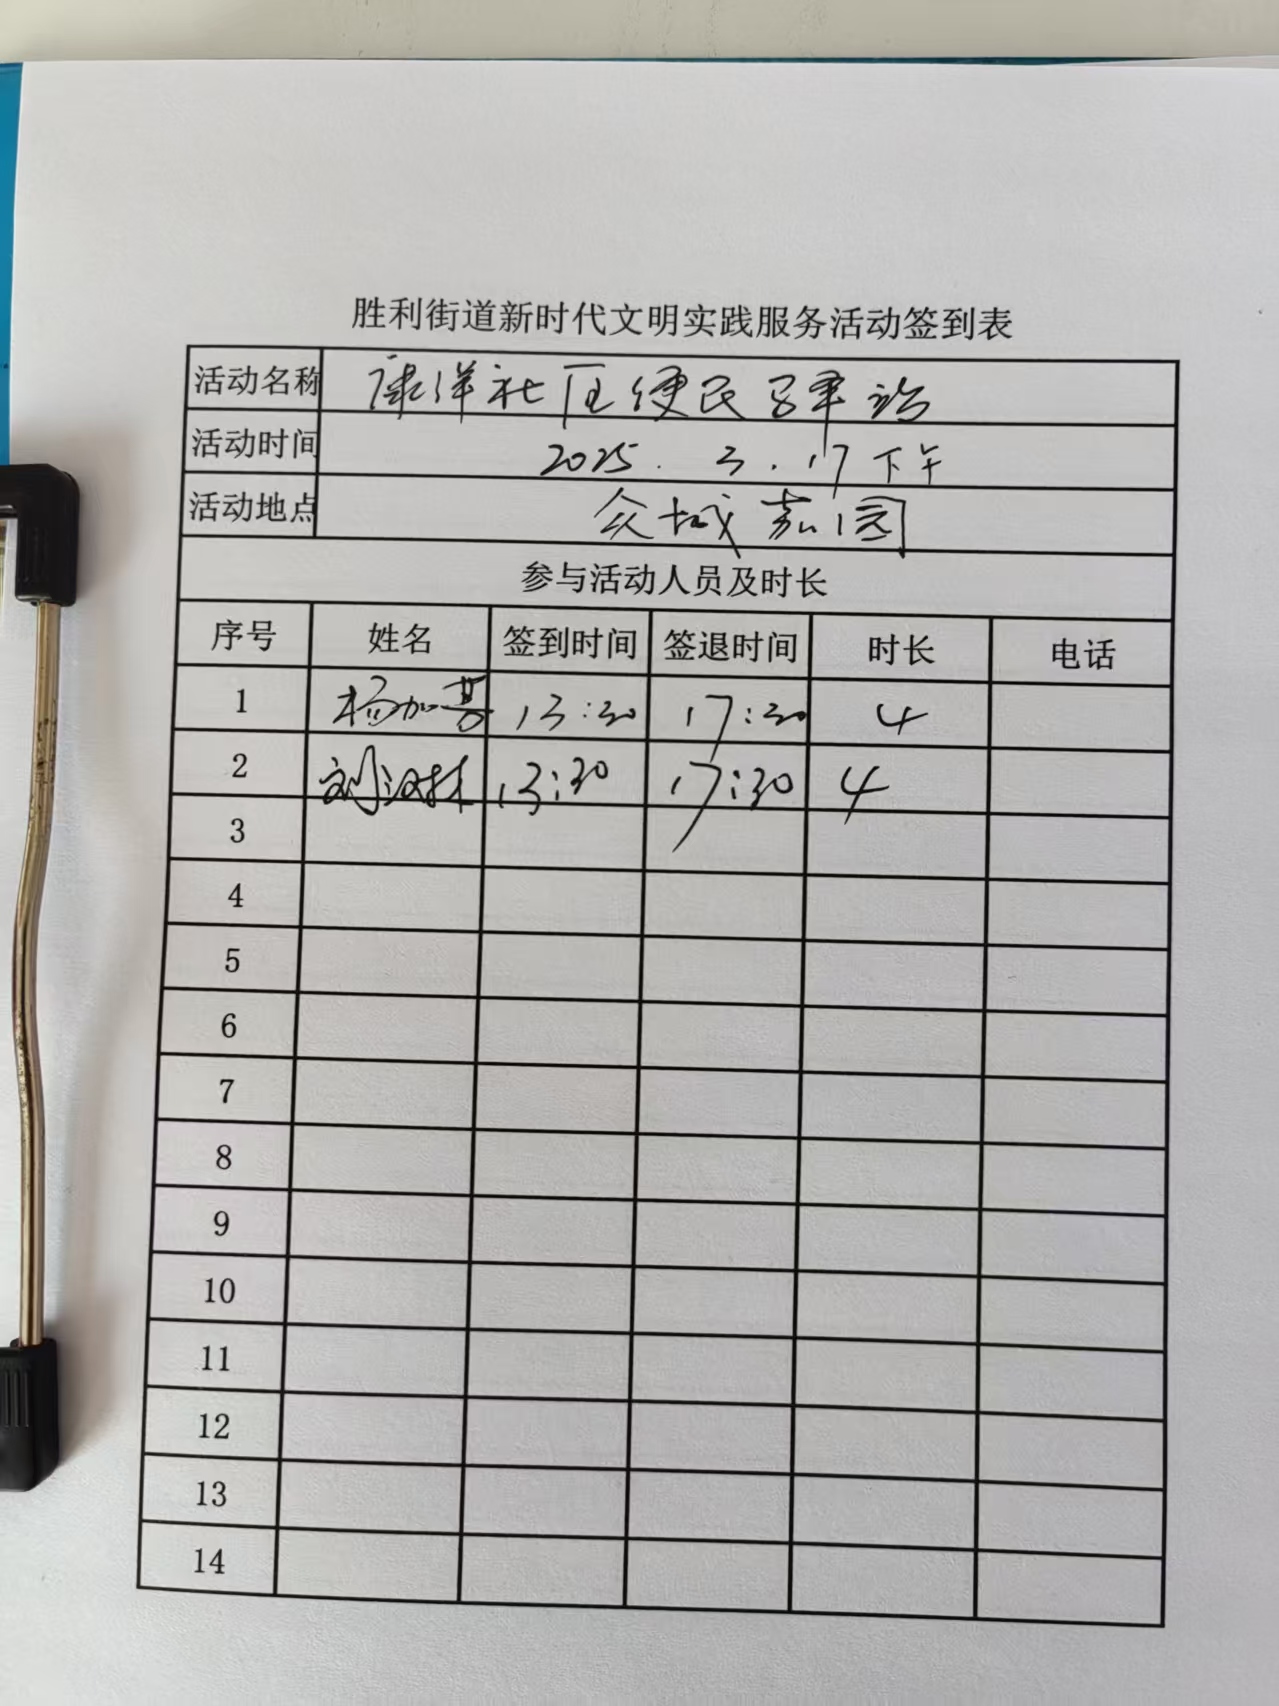 胜利街道新时代文明实践服务活动签到表
活动名称 康洋社区便民驿站
活动时间 2025.3.17下午
活动地点 众城嘉园
参与活动人员及时长
序号 姓名 签到时间 签退时间 时长 电话
1 杨加 13:30 17:30 4
2 刘汉林 13:30 17:30 4
3
4
5
6
7
8
9
10
11
12
13
14